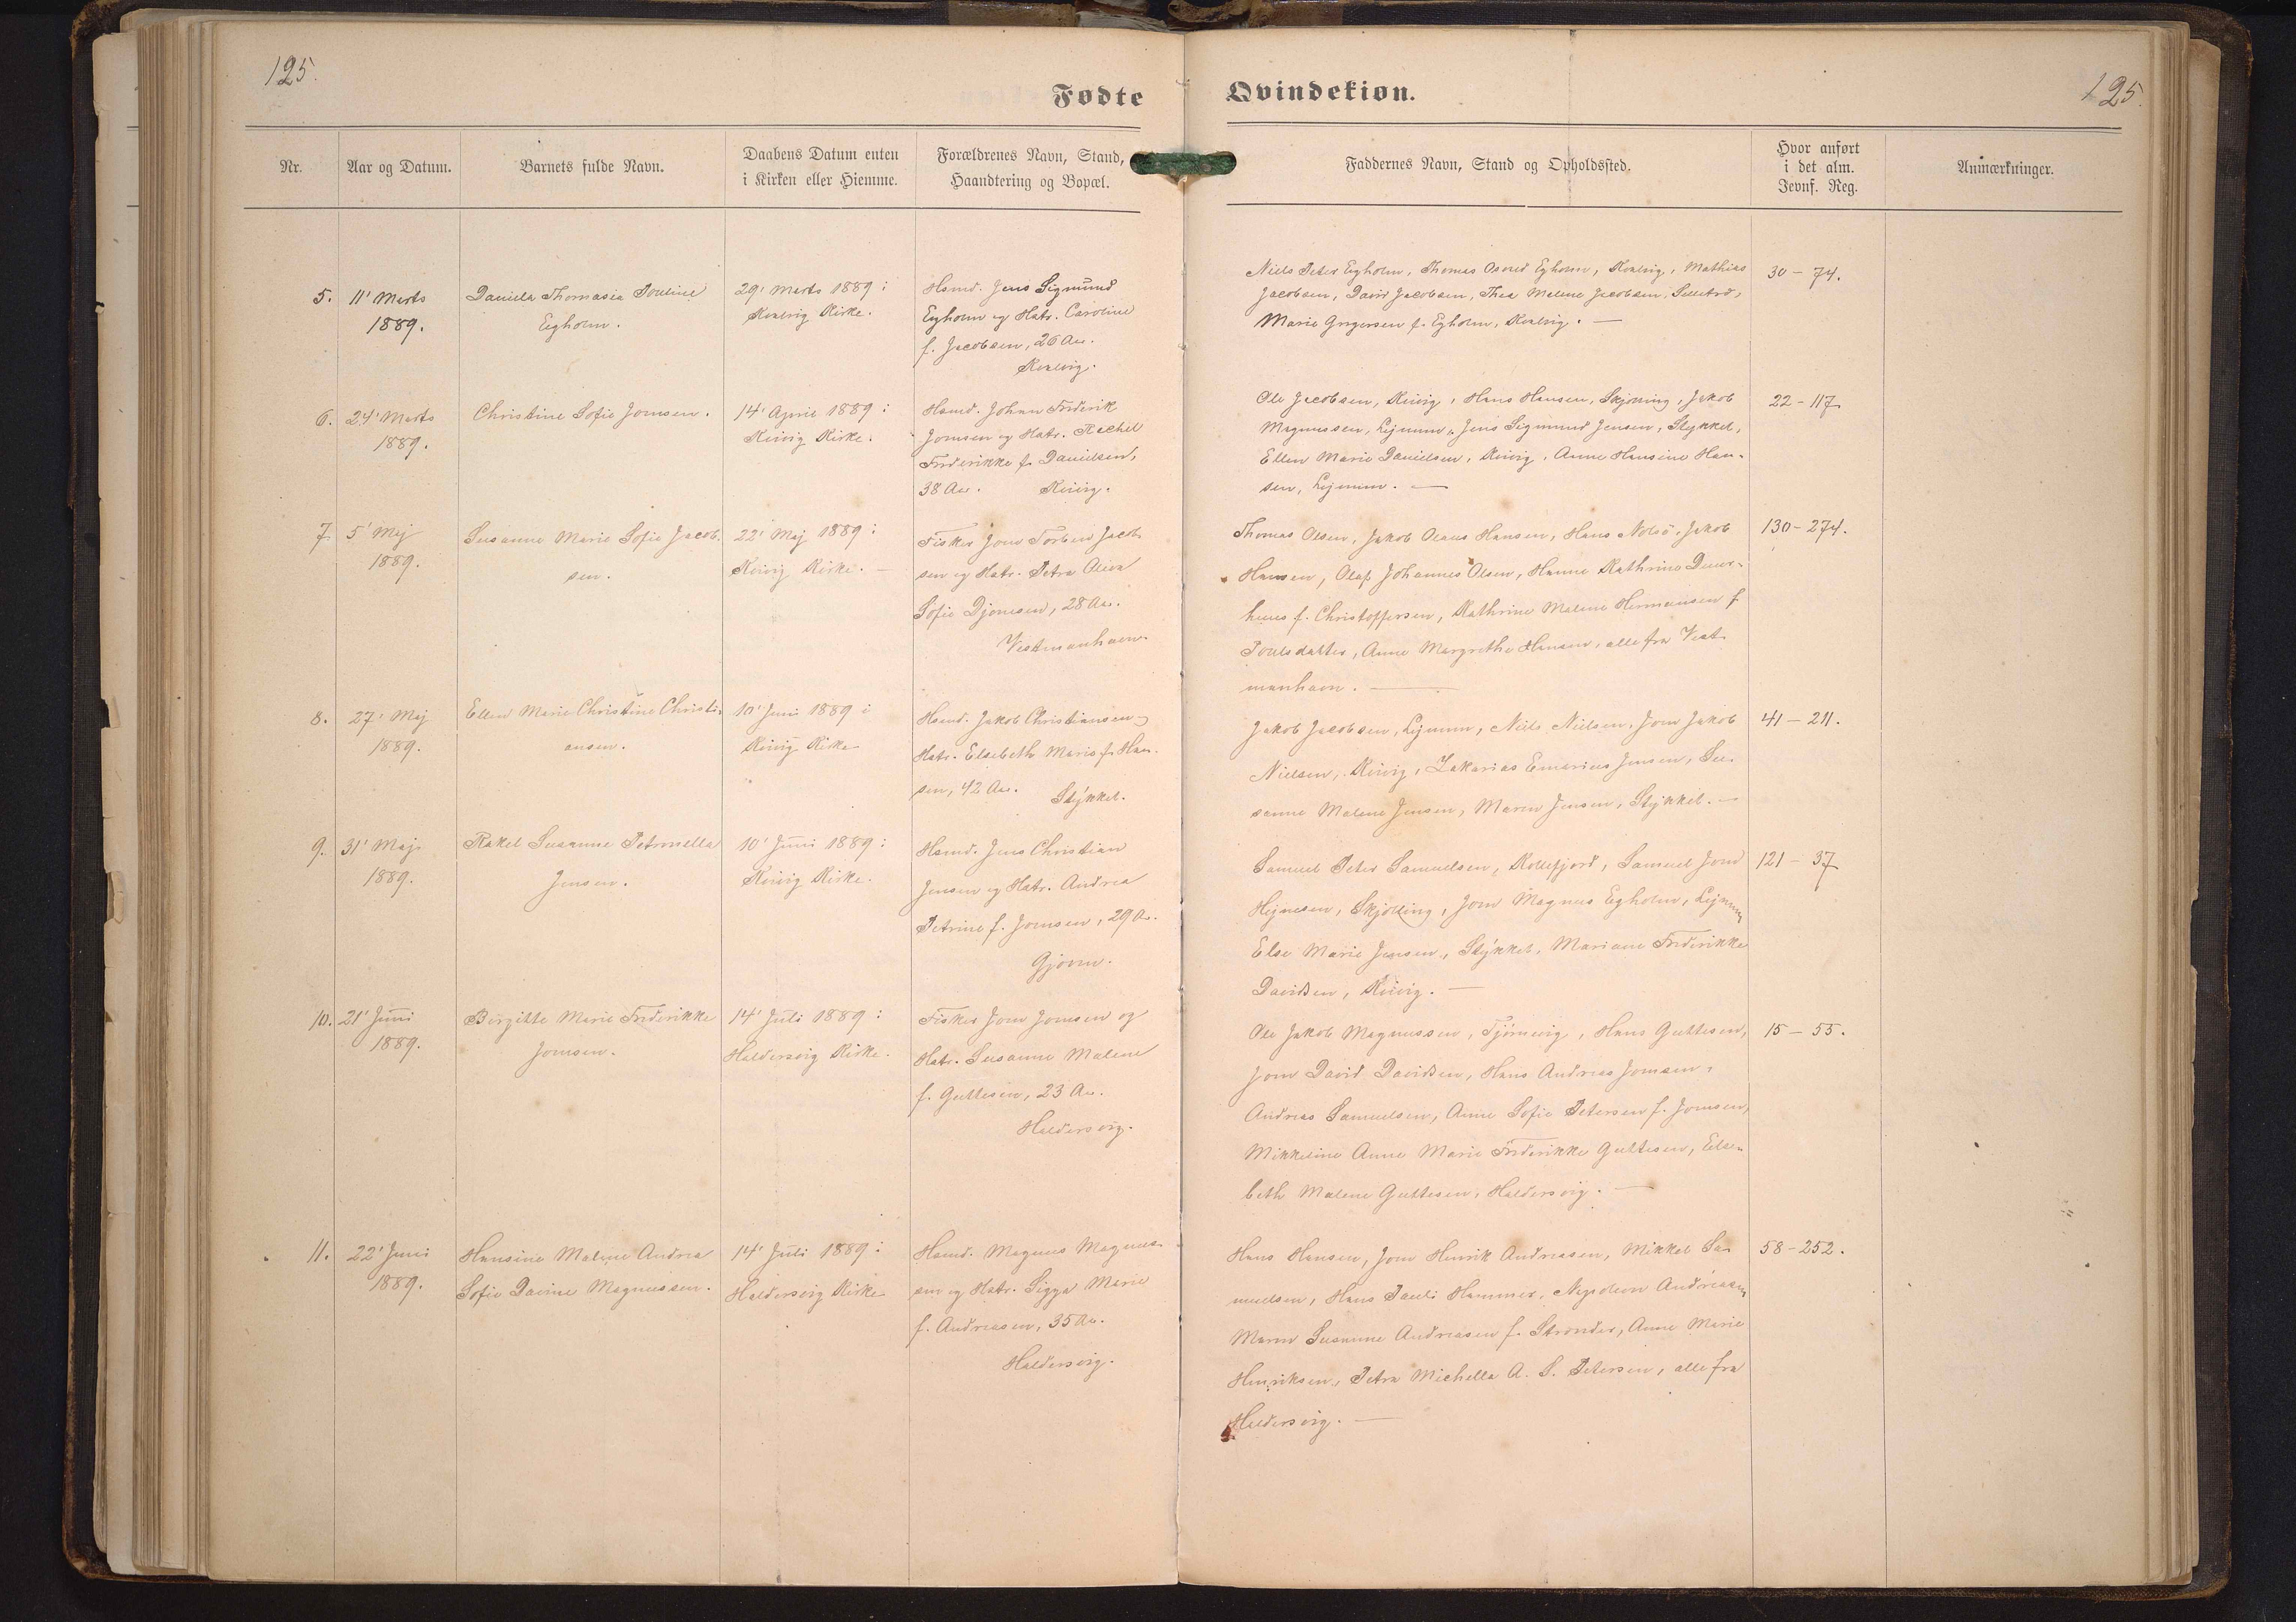 125.
125.
Fødte
Qvindekiøn.
Nr.
Aar og Datum.
Barnets fulde Navn.
Daabens Datum enten
i Kirken eller Hiemme.
Forældrenes Navn, Stand,
Haandtering og Bopæl.
Faddernes Navn, Stand og Opholdssted.
Hvor anført
i det alm.
Jevnf. Reg.
Anmærkninger.
5.
11' Marts
1889.
Daniela Thomasia Pouline
Egholm.
29' Marts 1889 i
Kvalvig Kirke.
Hsmd. Jens Sigmund
Egholm og Hstr. Caroline
f. Jacobsen, 26 Aar.
Kvalvig.
Niels Peter Egholm, Thomas Egholm, Kvalvig, Mathias
Jacobsen, David Jacobsen, Thea Malene Jacobsen,
Marie f. Egholm, Kvalvig. —
30 - 74.
6.
24' Marts
1889.
Christine Sofie Jomsen.
14' April 1889 i
Kvivig Kirke.
Hsmd. Johan Frederik
Jomsen og Hstr. Rachel
Frederikke f. Danielsen,
38 Aar. Kvivig.
Ole Jacobsen, Kvivig, Hans Hansen, Skjælling, Jakob
Magnussen, Lejnum, Jens Sigmund Jensen, Stykket,
Ellen Marie Danielsen, Kvivig, Anne Hansine Han-
sen, Lejnum. —
22 - 117.
7.
5' Maj
1889.
Susanne Marie Sofie Jacob-
sen.
22' Maj 1889 i
Kvivig Kirke. —
Fisker Joen Torben Jacob-
sen og Hstr. Petra
Sofie Djonesen, 28 Aar.
Vestmanhavn.
Thomas Olsen, Jakob Olaus Hansen, Hans Nolsø, Jakob
Hansen, Olaf Johannes Olsen, Hanne Kathrine
f. Christoffersen, Kathrine Malene Hermansen f.
Poulsdatter, Anne Margrethe Hansen, alle fra Vest-
manhavn. —
130 - 274.
8.
27' Maj
1889.
Ellen Marie Christine Christi-
ansen.
10' Juni 1889 i
Kvivig Kirke
Hsmd. Jakob Christiansen og
Hstr. Elsebeth Marie f. Han-
sen, 42 Aar. Stykket.
Jakob Jacobsen, Lejnum, Niels Nielsen, Joen Jakob
Nielsen, Kvivig, Zakarias Emarius Jensen, Su-
sanne Malene Jensen, Maren Jensen, Stykket. —
41 - 211.
9.
31' Maj
1889.
Rakel Susanne Petronella
Jensen.
10' Juni 1889 i
Kvivig Kirke.
Hsmd. Jens Christian
Jensen og Hstr. Andrea
Petrine f. Joensen, 29 Aar.
Gjovn.
Samuel Peter Samuelsen, Kollefjord, Samuel Joen
Hejnesen, Skjælling, Joen Magnus Egholm, Lejnum,
Else Marie Jensen, Stykket, Mariane Frederikke
Davidsen, Kvivig. —
121 - 37
10.
21' Juni
1889.
Birgitte Marie Frederikke
Joensen.
14' Juli 1889 i
Haldersvig Kirke.
Fisker Joen Joensen og
Hstr. Susanne Malene
f. Guttesen, 23 Aar.
Haldersvig.
Ole Jakob Magnussen, Tjørnevig, Hans Guttesen,
Joen David Davidsen, Hans Andreas Joensen,
Andreas Samuelsen, Anne Sofie Petersen f. Joensen,
Mikkeline Anne Marie Frederikke Guttesen, Else-
beth Malene Guttesen, Haldersvig. —
15 - 55.
11.
22' Juni
1889.
Hansine Malene Andrea
Sofie Davine Magnussen.
14' Juli 1889 i
Haldersvig Kirke
Hsmd. Magnus Magnus-
sen og Hstr. Sigga Marie
f. Andreasen, 35 Aar.
Haldersvig.
Hans Hansen, Joen Henrik Andreasen, Mikkel Sa-
muelsen, Hans Pauli Hammer, Napoleon Andreasen,
Maren Susanne Andreasen f. Strønder, Anne Marie
Henriksen, Petra Michella A. S. Petersen, alle fra
Haldersvig. —
58 - 252.